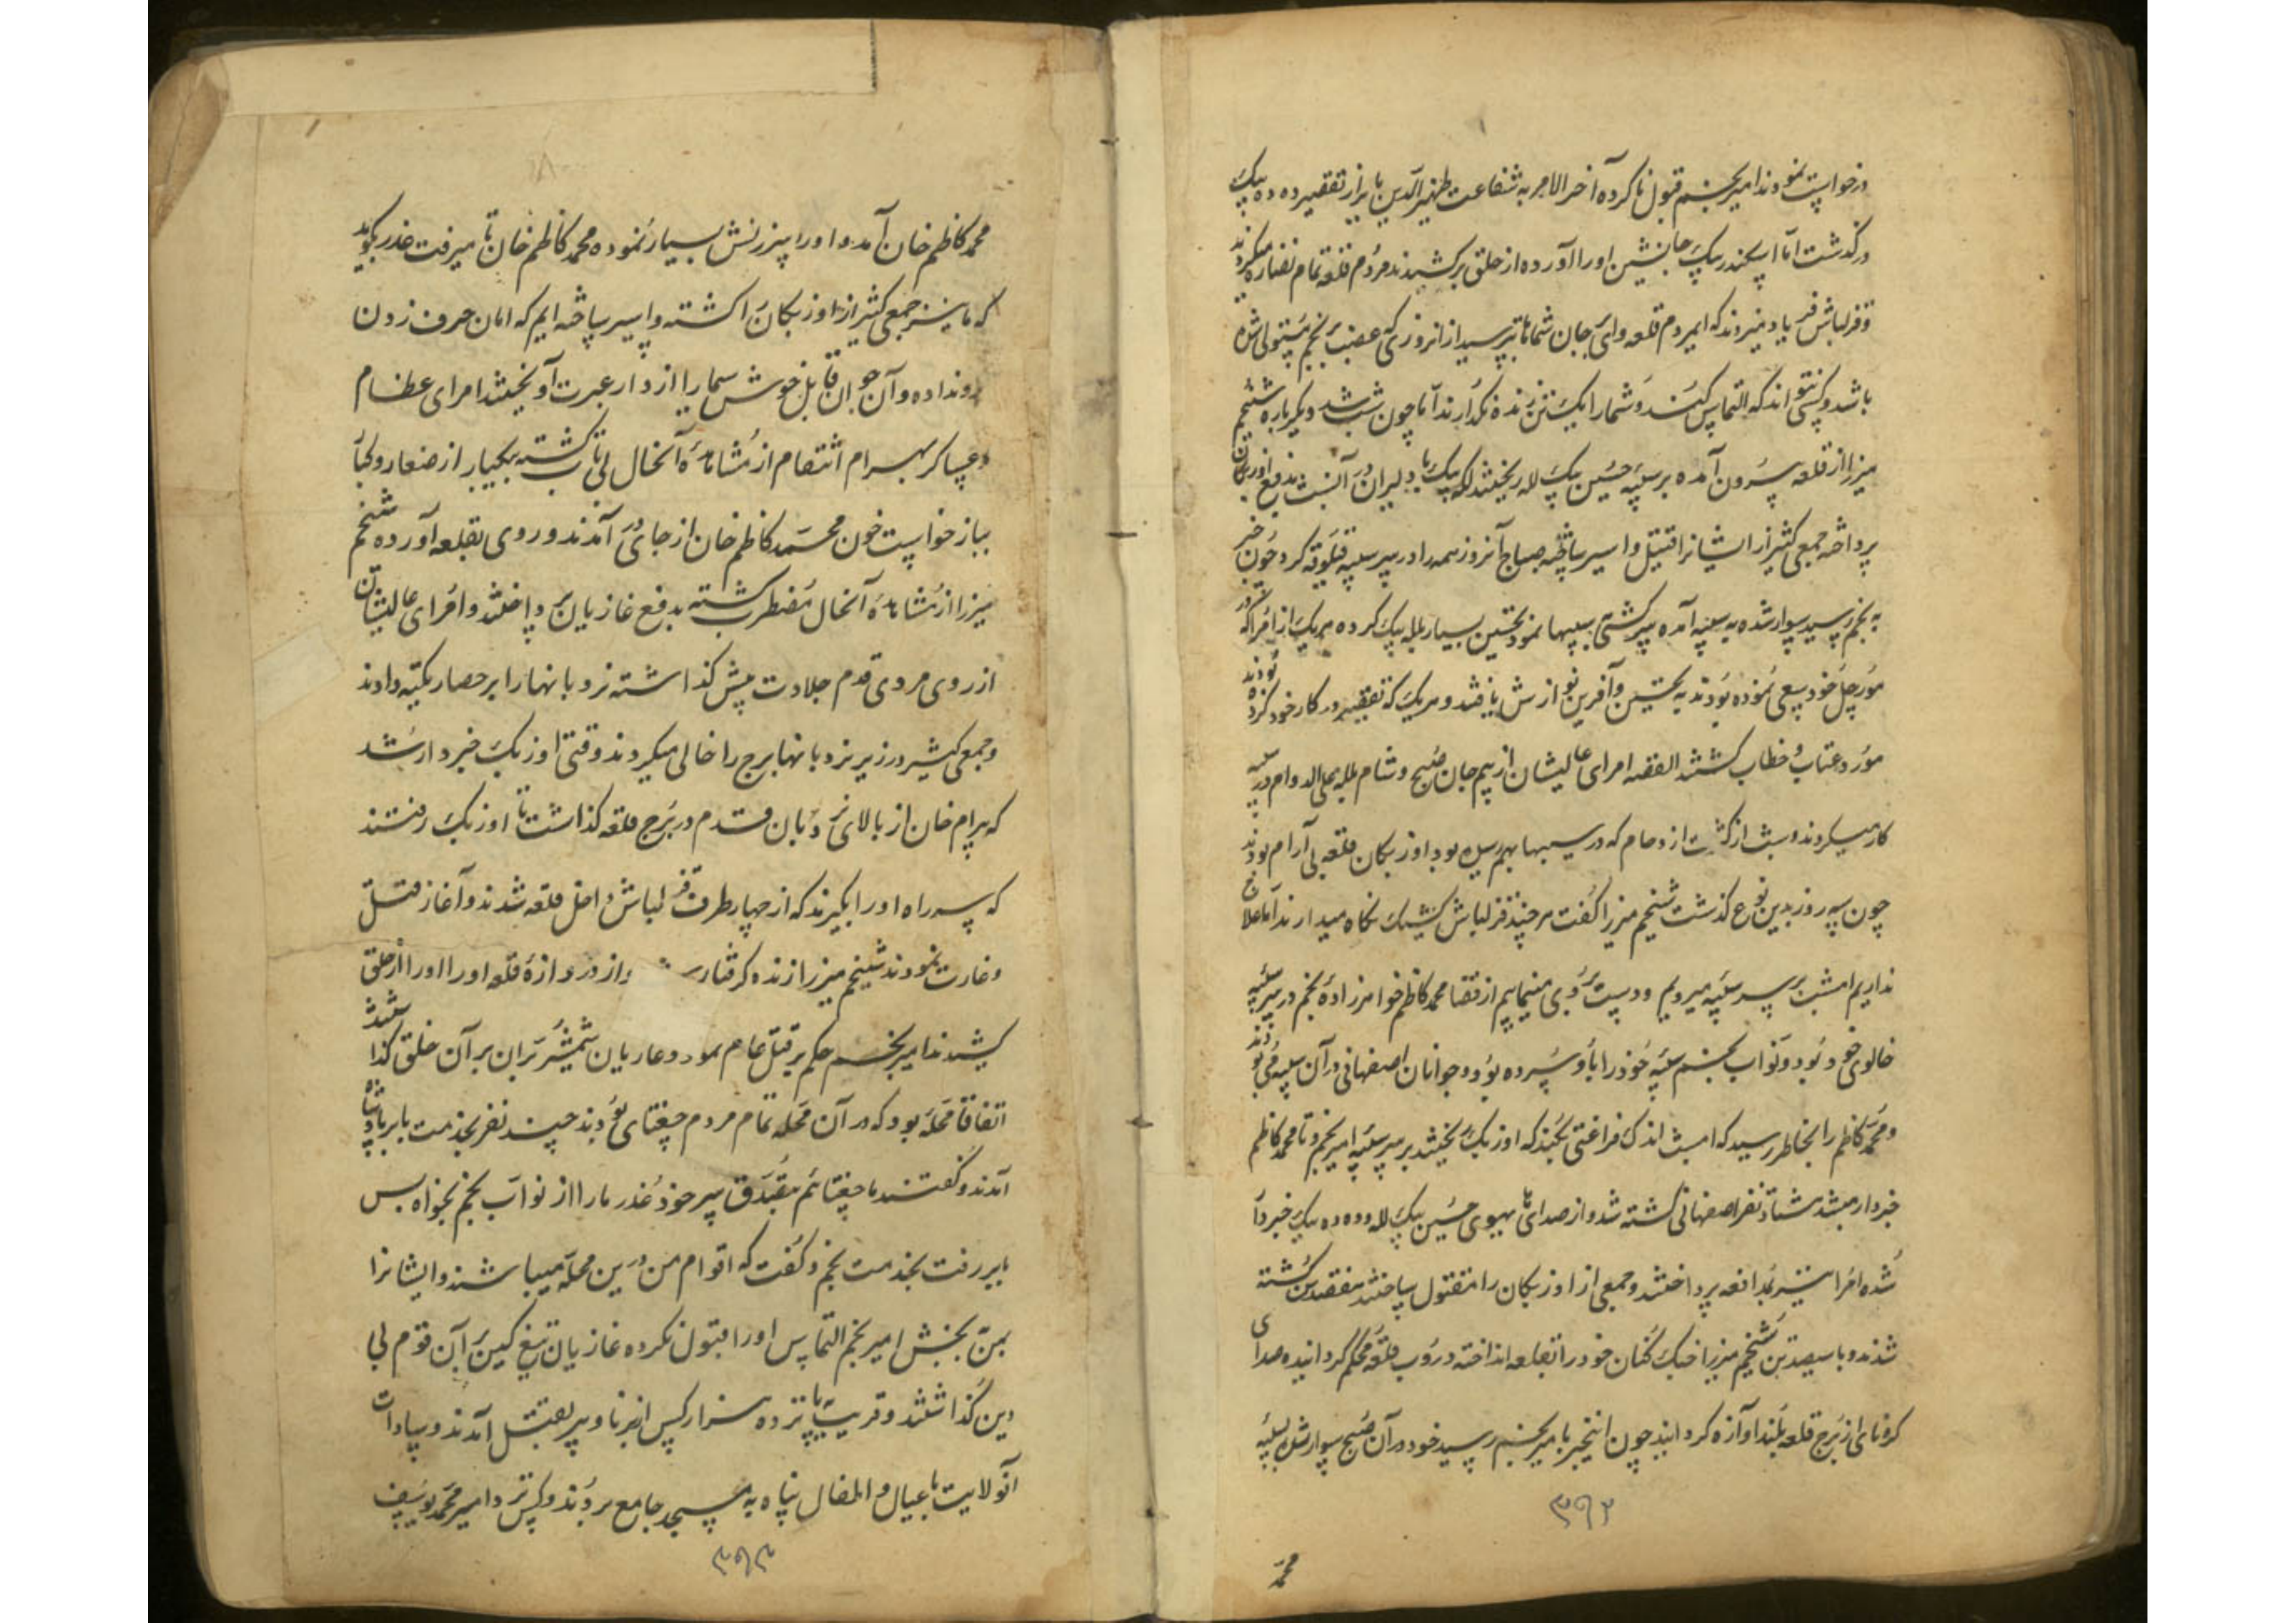 درخواست نمودند امیر نجم قبول ناکرده آخر الامر به شفاعت ظهیر الدین بابر از تقصیر ده ده بیک
درگذشت اما اسکندر بیک جانشین او را آورده از حلق برکشیدند مردم قلعه تمام نضاره میکردند
و قزلباش فریاد میزدند که ایمردم قلعه وای بجان شماها بترسید از انروزی که غضب نجم مستولی شده
باشد و کسی نتواند که التماس کند و شما را یک تن زنده نگذارند اما چون شب شد دیگر باره شنیم
میرزا از قلعه بیرون آمده بر سیبه حسین بیک لله ریختند لله بیک با دلیران در آنشب بدفع اوزبکان
پرداخته جمعی کثیر از ایشانرا قتیل و اسیر ساخته صباح آنروز همه را در سر سیبه کرد چون خبر
به نجم رسید سوار شده به سیبه آمده سرکشی سیبها نمود تحسین بسیار بلله بیک کرده هر یک از امرا که در
مورچل خود سعی نموده بودند به تحسین و آفرین نوازش یافتند و هر یک که تقصیر در کار خود کرده بودند
مورد عتاب و خطاب گشتند القصه امرای عالیشان از بیم جان صبح و شام بلکه علی الدوام در سیبه
کار میکردند و شب از کثرت ازدحام که در سیبها بهم رسیده بود اوزبکان قلعه بی آرام بودند
چون سه روز بدین نوع گذشت شنیم میرزا گفت هر چند قزلباش کشیک نگاه میدارند اما علاج
نداریم امشب بر سر سیبه میرویم و دست بردی مینماییم از قضا محمد کاظم خواهرزاده نجم در سر سیبه
خالوی خود بود و نواب نجم سیبه خود را باو سپرده بود و جوانان اصفهانی در آن سیبه می بودند
و محمد کاظم را بخاطر رسید که امشب اندک فراغتی بکند که اوزبک ریختند بر سر سیبه امیر نجم و تا محمد کاظم
خبردار میشد هشتاد نفر اصفهانی کشته شد و از صدای های هیوی حسین بیک لله و ده ده بیک خبردار
شده امرا نیز بمدافعه پرداختند و جمعی از اوزبکان را مقتول ساختند هفتصد کس کشته
شدند و با سیصد تن شنیم میرزا جنگ کنان خود را بقلعه انداخته دروب قلعه محکم گردانیده صدای
کرنای از برج قلعه بلند آوازه گردانید چون اینخبر بامیر نجم رسید خود در آن صبح سوار شده بسیبه
۳۹۲
محمد
محمد کاظم خان آمد و او را سرزنش بسیار نموده محمد کاظم خان تا میرفت عذر بگوید
که ما نیز جمعی کثیر از اوزبکان را کشته و اسیر ساخته ایم که امان حرف زدن
روندا ده و آن جوان قابل خوش سیما را از دار عبرت آویختند امرای عظام
و عساکر بهرام انتقام از مشاهده آنحال بی تاب گشته بیکبار از صغار و کبار
بباز خواست خون محمد کاظم خان از جای در آمدند و روی بقلعه آورده شنیم
میرزا از مشاهده آنحال مضطرب گشته بدفع غازیان پرداختند و امرای عالیشان
از روی مردی قدم جلادت پیش گذاشته نردبانها را بر حصار تکیه دادند
و جمعی کثیر در زیر نردبانها برج را خالی میکردند وقتی اوزبک خبردار شد
که بیرام خان از بالای نردبان قدم در برج قلعه گذاشت تا اوزبک رفتند
که سر راه او را بگیرند که از چهار طرف قزلباش داخل قلعه شدند و آغاز قتل
و غارت نمودند شنیم میرزا زنده گرفتار و از در دروازه قلعه او را از حلق
کشیدند امیر نجم حکم بر قتل عام نمود و غازیان شمشیر بران بر آن خلق گذاشتند
اتفاقا محله بود که در آن محله تمام مردم چغتای بودند چند نفر بخدمت بابر پادشاه
آمدند و گفتند ما چغتائیم بتصدق سر خود عذر ما را از نواب نجم بخواه پس
بابر رفت بخدمت نجم و گفت که اقوام من درین محله میباشند و ایشانرا
بمن بخش امیر نجم التماس او را قبول نکرده غازیان تیغ کین بر آن قوم بی
دین گذاشتند و قریب به پانزده هزار کس از برنا و پیر بقتل آمدند و سادات
آنولایت با عیال و اطفال پناه به مسجد جامع بردند و کس نزد امیر محمد یوسف
۳۹۳